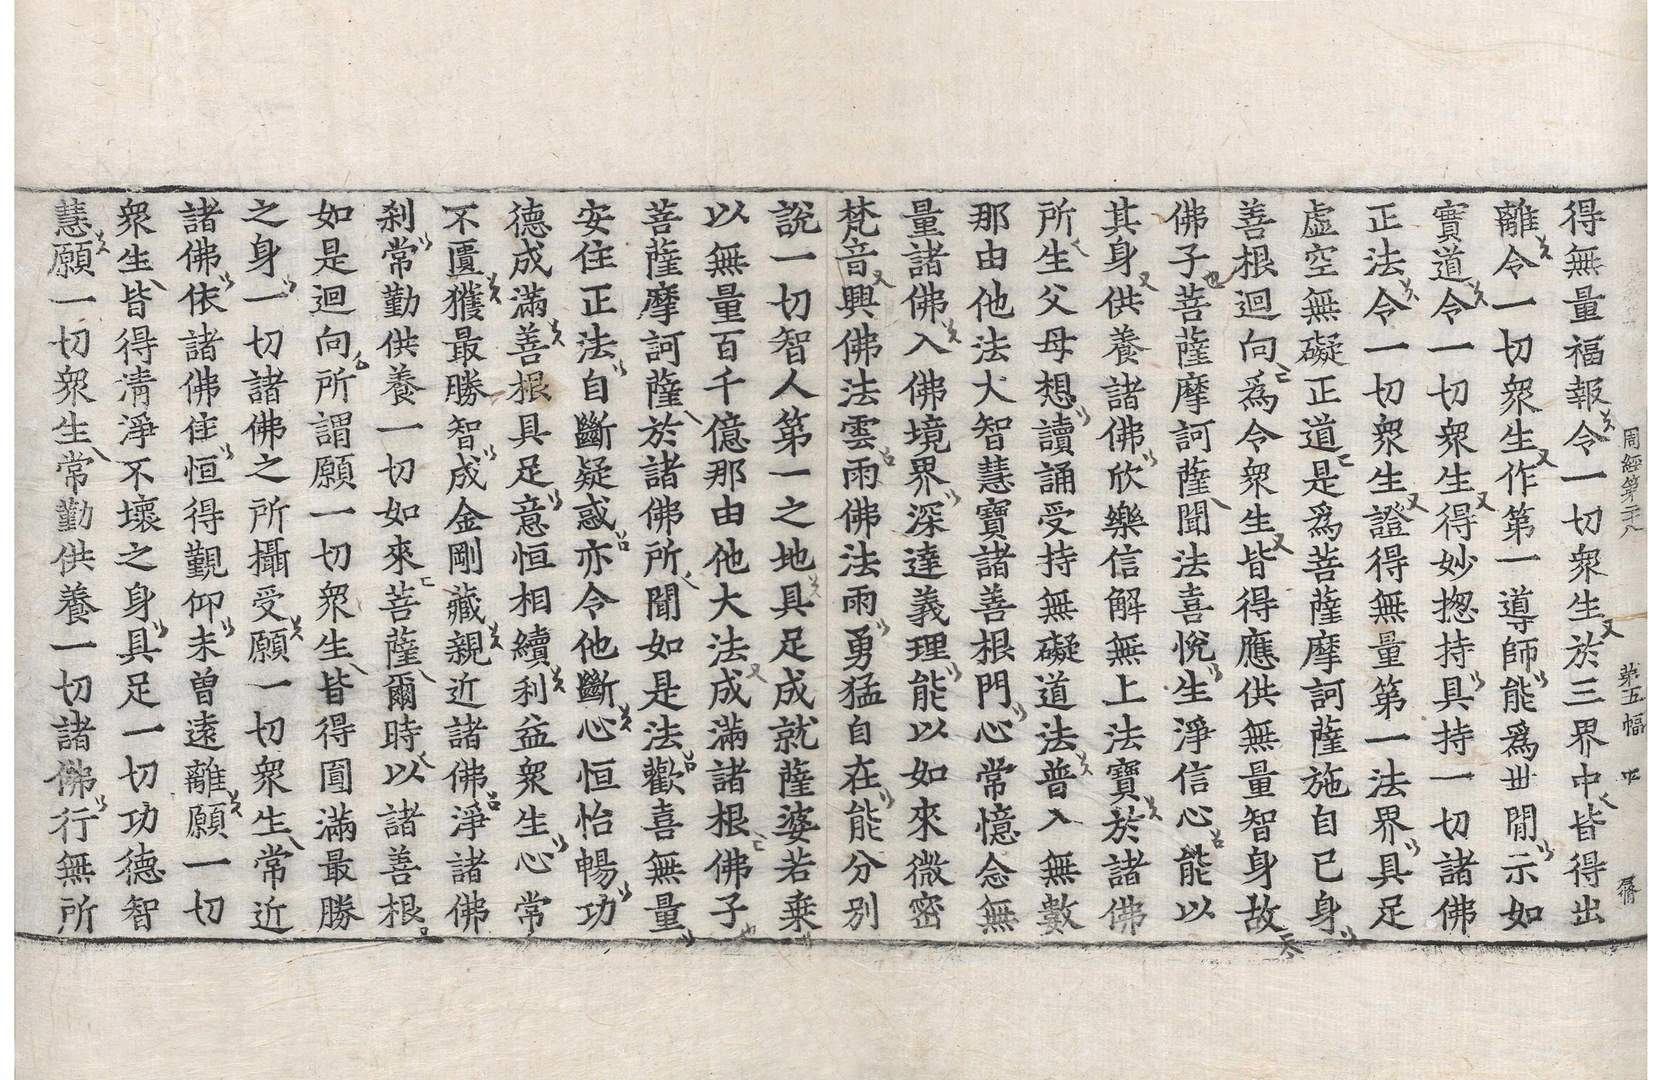 周經第二十八 第五幅
得無量福報令一切衆生於三界中皆得出
離令一切衆生作第一導師能爲世閒示如
實道令一切衆生得妙揔持具持一切諸佛
正法令一切衆生證得無量第一法界具足
虛空無礙正道是爲菩薩摩訶薩施自已身
善根迴向爲令衆生皆得應供無量智身故
佛子菩薩摩訶薩聞法喜悅生淨信心能以
其身供養諸佛欣樂信解無上法寶於諸佛
所生父母想讀誦受持無礙道法普入無數
那由他法大智慧寶諸善根門心常憶念無
量諸佛入佛境界深達義理能以如來微密
梵音興佛法雲雨佛法雨勇猛自在能分別
說一切智人第一之地具足成就薩婆若乗
以無量百千億那由他大法成滿諸根佛子
菩薩摩訶薩於諸佛所聞如是法歡喜無量
安住正法自斷疑惑亦令他斷心恒怡暢功
德成滿善根具足意恒相續利益衆生心常
不匱獲最勝智成金剛藏親近諸佛淨諸佛
刹常勤供養一切如來菩薩爾時以諸善根
如是迴向所謂願一切衆生皆得圓滿最勝
之身一切諸佛之所攝受願一切衆生常近
諸佛依諸佛住恒得觀仰未曾遠離願一切
衆生皆得清淨不壞之身具足一切功德智
慧願一切衆生常勤供養一切諸佛行無所